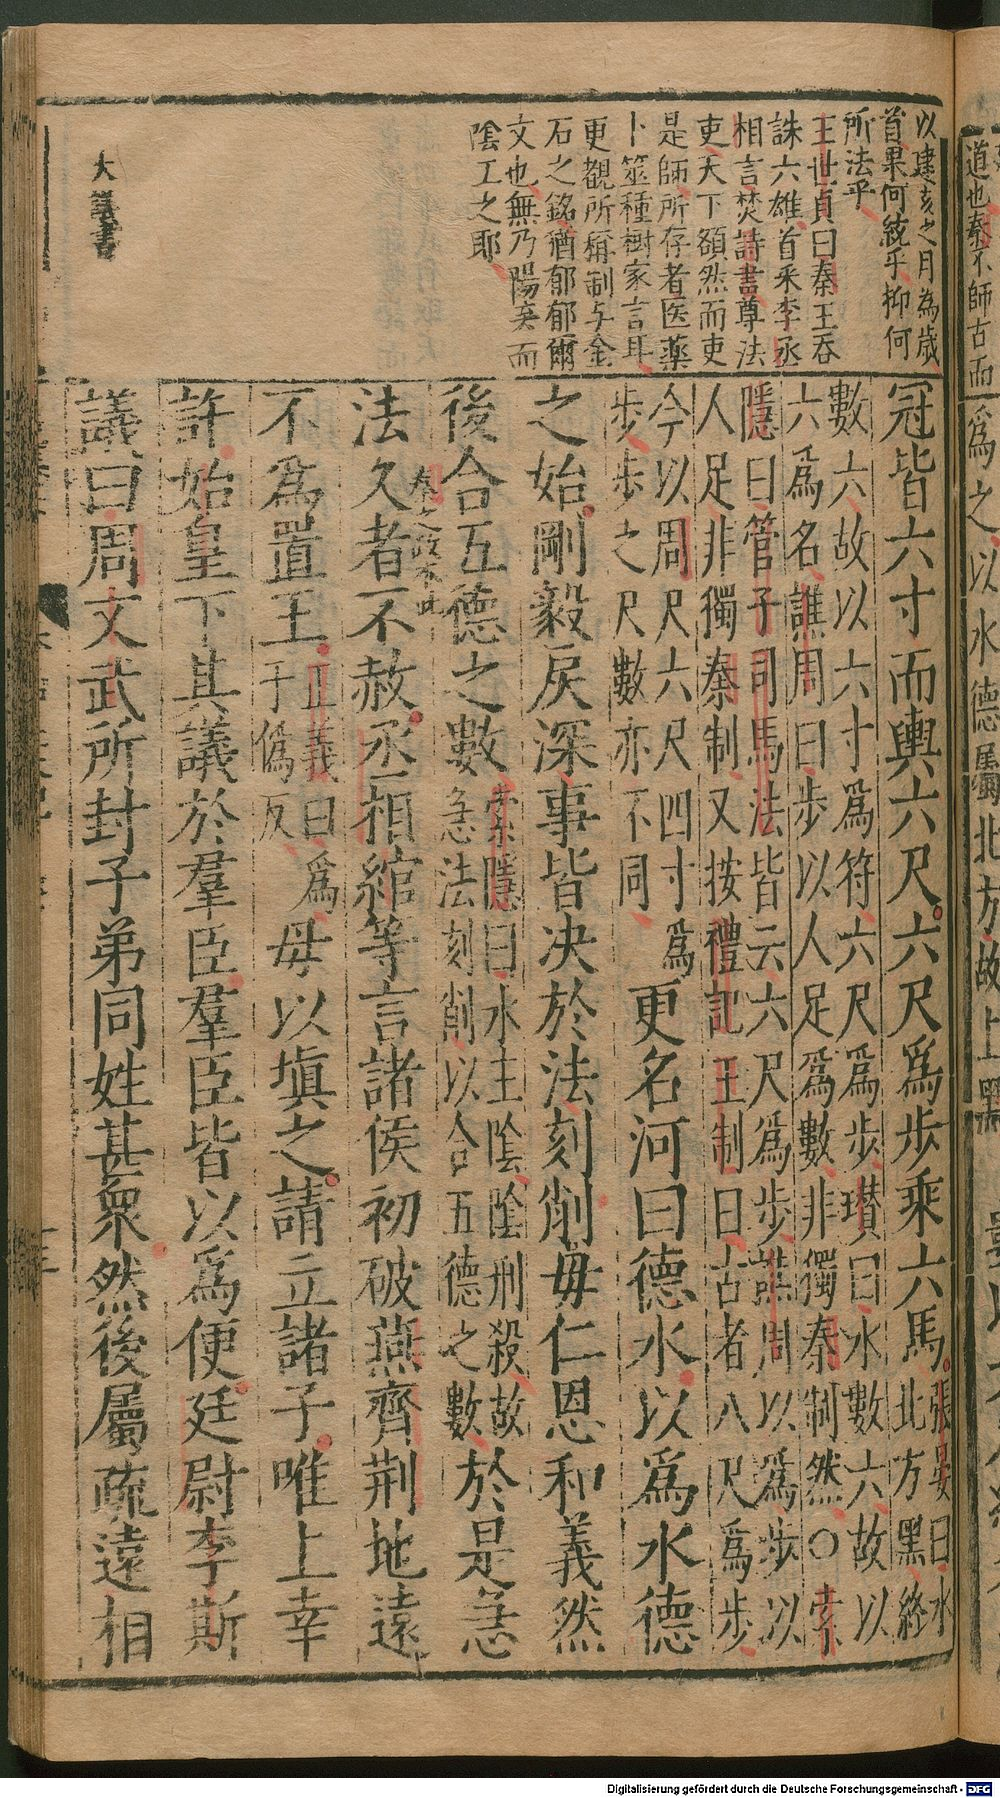 道也秦不師古而
爲之以水德屬北方故上黑
以建亥之月為歲
首果何統乎抑何
所法乎
王世貞曰秦王吞
誅六雄首釆李丞
相言焚詩書尊法
吏天下頟然而吏
是師所存者医薬
卜筮種樹家言耳
更覩所稱制与金
石之銘猶郁郁爾
文也無乃陽矣而
陰工之耶
大篆書
冠皆六寸而輿六尺六尺爲步乘六馬
張晏曰水
北方黑終
數六故以六寸爲符六尺爲步瓚曰水數六故以
六爲名譙周曰步以人足爲數非獨秦制然○索
隱曰管子司馬法皆云六尺爲步譙周以爲步以
人足非獨秦制又按禮記王制曰古者八尺爲步
今以周尺六尺四寸爲
步步之尺數亦不同
更名河曰德水以爲水德
之始剛毅戾深事皆决於法刻削毋仁恩和義然
後合五德之數
索隱曰水主陰陰刑殺故
急法刻削以合五德之數
於是急
秦之政不止
法久者不赦丞相綰等言諸侯初破燕齊荆地遠
不爲置王
正義曰爲
于偽反
毋以填之請立諸子唯上幸
許始皇下其議於羣臣羣臣皆以爲便廷尉李斯
議曰周文武所封子弟同姓甚衆然後屬疏遠相
Digitalisierung gefördert durch die Deutsche Forschungsgemeinschaft - DFG